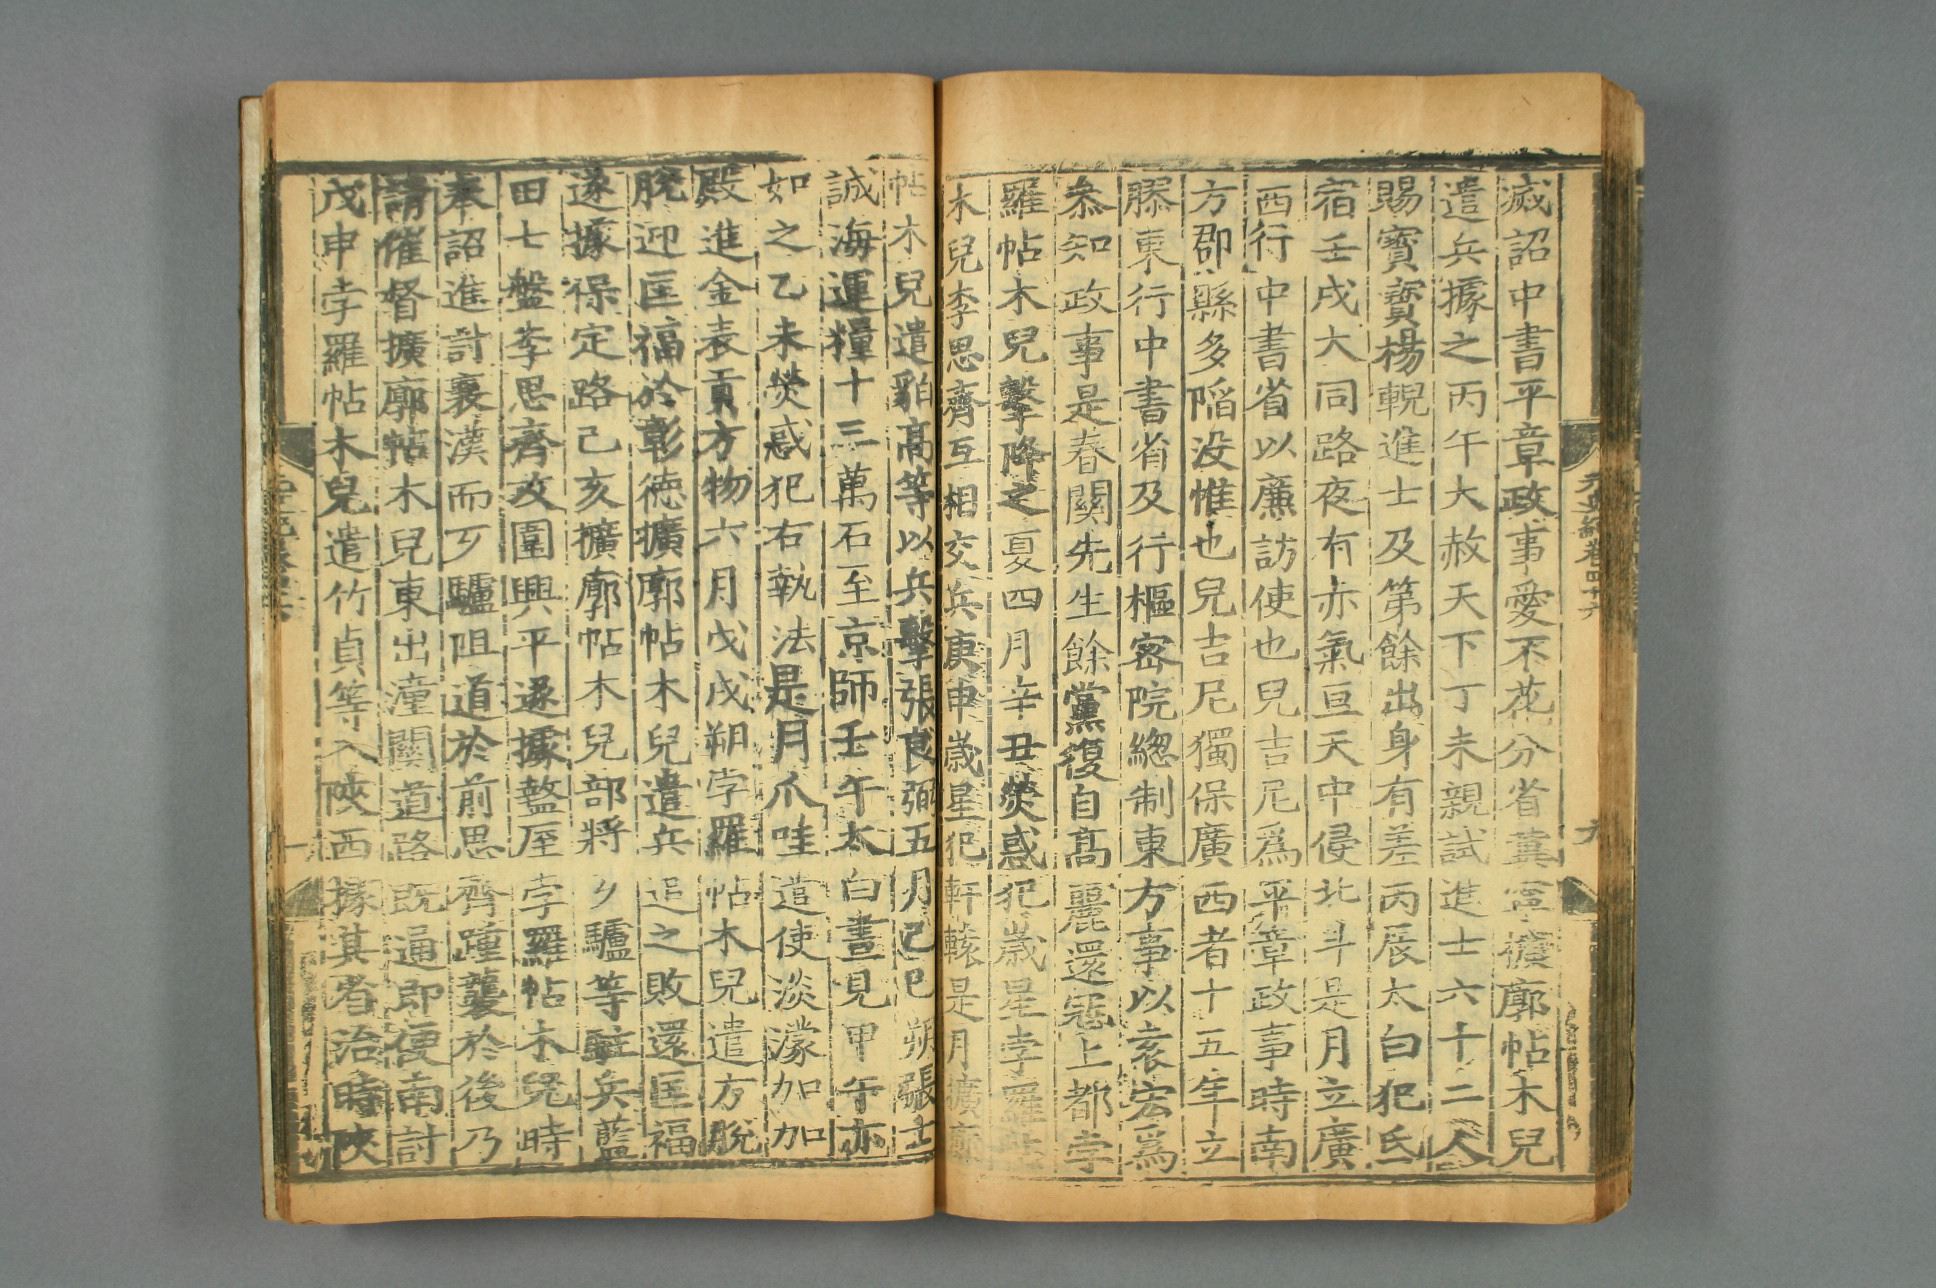 滅詔中書平章政事愛不花分省冀寧擴廓帖木兒
遣兵據之丙午大赦天下丁未親試進士六十二人
賜寶寶楊輗進士及第餘出身有差丙辰太白犯氐
宿壬戌大同路夜有赤氣亘天中侵北斗是月立廣
西行中書省以廉訪使也兒吉尼爲平章政事時南
方郡縣多陷没惟也兒吉尼獨保廣西者十五年立
膠東行中書省及行樞密院緫制東方事以袁宏爲
叅知政事是春關先生餘黨復自髙麗還冦上都孛
羅帖木兒擊降之夏四月辛丑熒惑犯歲星孛羅帖
木兒李思齊互相交兵庚申歲星犯軒轅是月擴廓
帖木兒遣貊高等以兵擊張良弼五月己巳朔張士
誠海運糧十三萬石至京師壬午太白晝見甲午亦
如之乙未熒惑犯右執法是月爪哇遣使淡濛加加
殿進金表貢方物六月戊戌朔孛羅帖木兒遣方脫
脫迎匡福於彰德擴廓帖木兒遣兵追之敗還匡福
遂據保定路己亥擴廓帖木兒部將歹驢等駐兵藍
田七盤李思齊攻圍興平遂據盩厔孛羅帖木兒時
奉詔進討襄漢而歹驢阻道於前思齊踵襲於後乃
請催督擴廓帖木兒東出潼關道路既通即便南討
戊申孛羅帖木兒遣竹貞等入陜西據其省治時陜
元史紀卷四十六
九